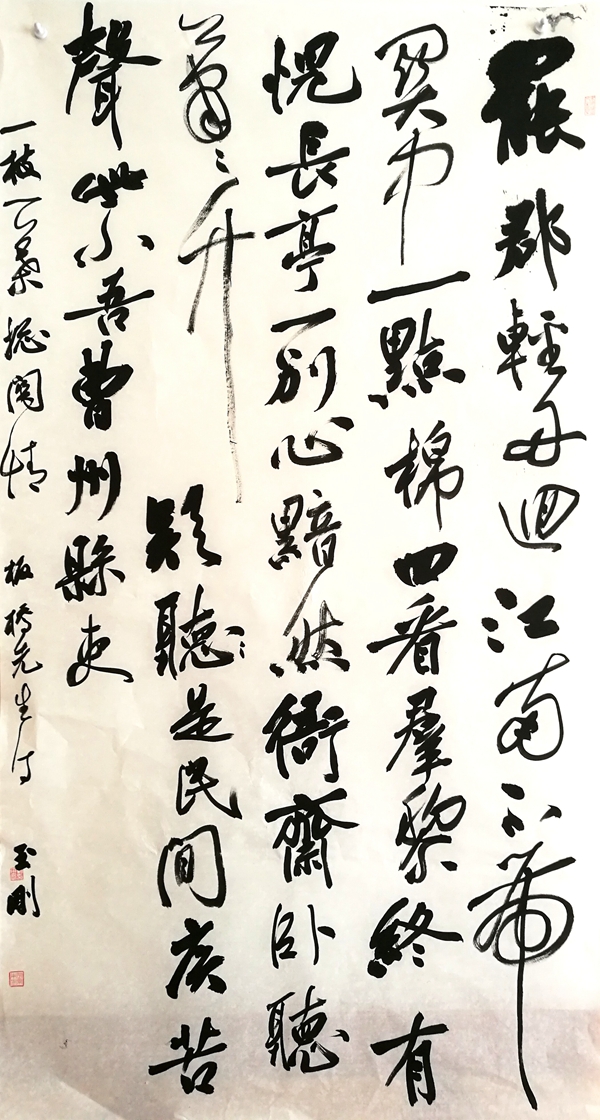 罷郡輕舟迴江南不帶
關中一點棉回看羣黎終有
愧長亭一別心黯然衙齋卧聽
蕭〻竹疑聽是民間疾苦
聲些小吾曹州縣吏
一枝一葉總關情 板橋先生詩 玉剛